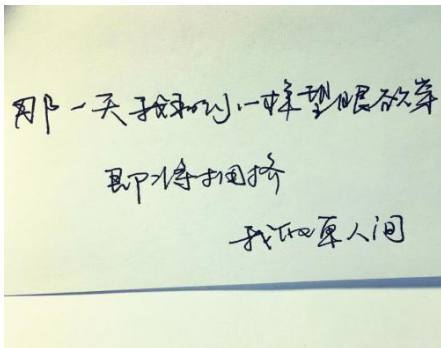 那一天我和你一样望眼欲穿
即将拥挤
我人间